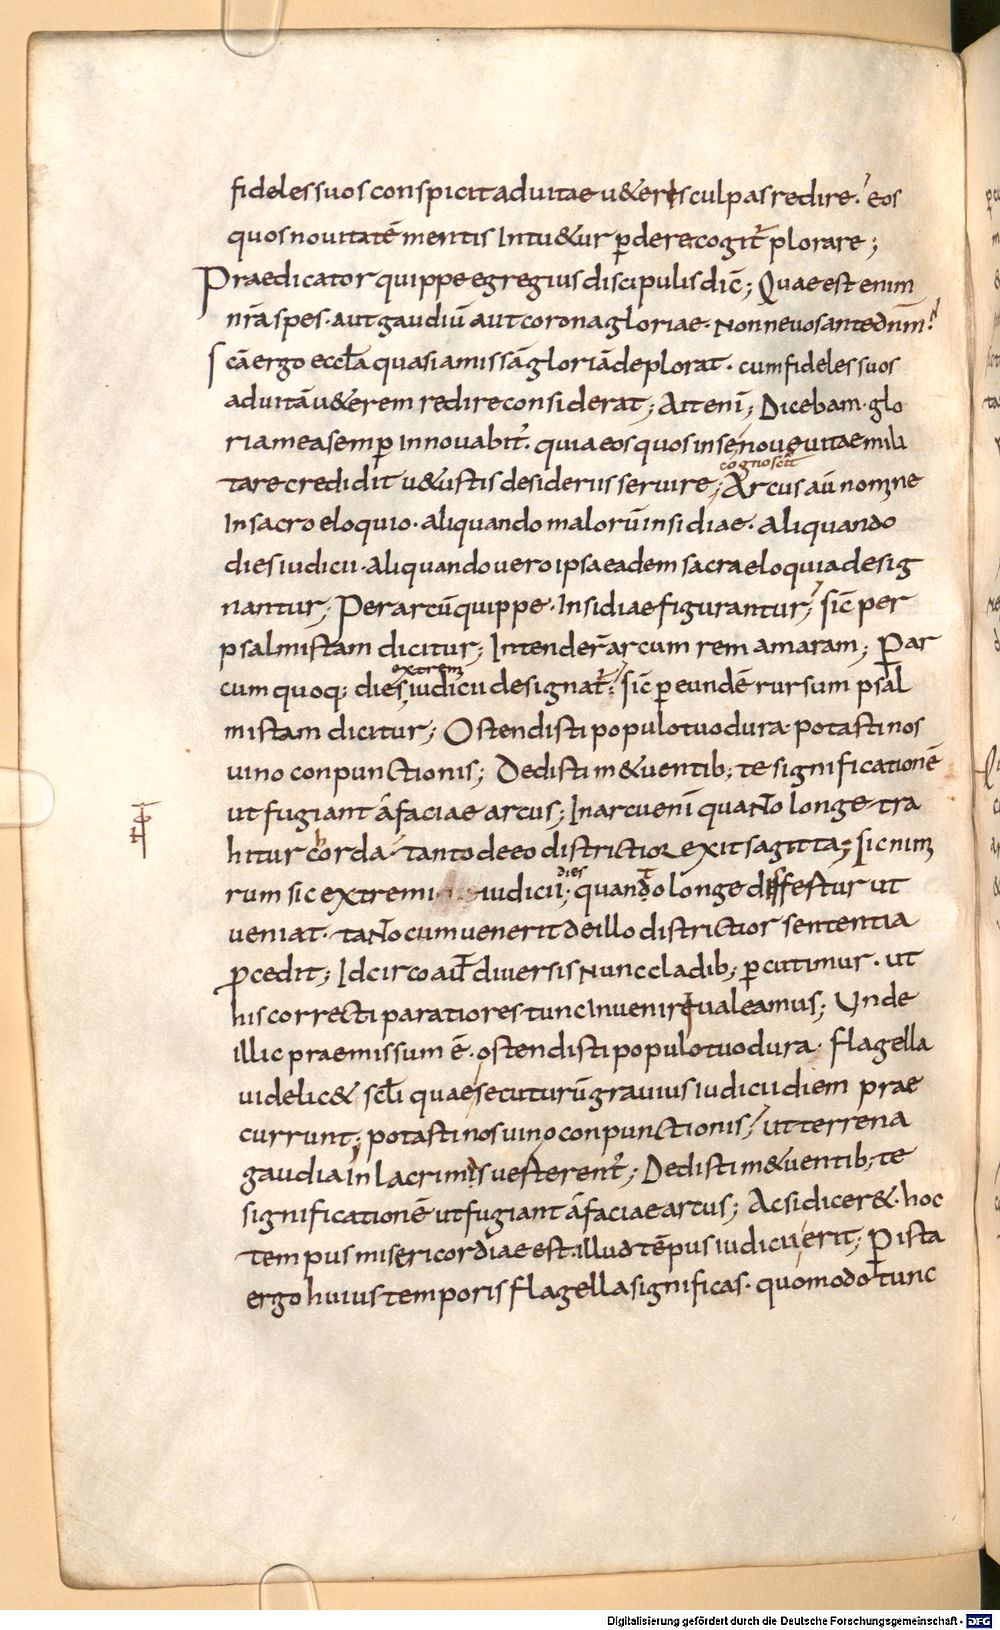 fideles suos conspicit ad uitae u&eris culpas redire. eos
quos nouitatē mentis Intu&ur ꝑdere cogit᷑ plorare;
Praedicator quippe egregius discipulis dic̄; Quae est enim
nr̄a spes. aut gaudiū aut corona gloriae. Nonne uos ante dn̄m?
Sc̄a ergo eccl̄a quasi amissā gloriā deplorat. cum fideles suos
ad uitā u&erem redire considerat; Ait enī; Dicebam. glo
ria mea semꝑ Innouabit᷑. quia eos quos in se noue uitae mili
cognoscit̄
tare credidit u&ustis desideriis seruire; Arcus aū nomine
In sacro eloquio. aliquando malorū insidiae. aliquando
dies iudicii. aliquando uero ipsa eadem sacra eloquia desig
nantur; Per arcū quippe. Insidiae figurantur; sic̄ per
psalmistam dicitur; Intender̄ arcum rem amaram; Per ar
extremi
cum quoq; dies iudicii designat᷑; sic̄ ꝑ eundē rursum psal
mistam dicitur; Ostendisti populo tuo dura. potasti nos
uino conpunctionis; Dedisti m&uentib; te significationē
ut fugiant a facie arcus; In arcu enī quanto longe tra
h
hitur corda. tanto de eo districtior exit sagitta; sic nim
dies
rum sic extremi iudicii; quando longe differtur ut
ueniat. tanto cum uenerit de illo districtior sententia
ꝓcedit; Idcirco aut̄ diuersis nunc cladib; ꝑcutimur. ut
his correcti paratiores tunc Inuenire ualeamus; Unde
illic praemissum ē. ostendisti populo tuo dura. flagella
uidelic& scl̄i quae secuturū grauius iudicii diem prae
currunt; potasti nos uino conpunctionis; ut terrena
gaudia In lacrimis uerterent᷑; Dedisti m&uentib; te
significationē ut fugiant a facie arcus; Ac si dicer&. hoc
tempus misericordiae est. illud tēpus iudicii erit; Ꝑ ista
ergo huius temporis flagella significas. quomodo tunc
Digitalisierung gefördert durch die Deutsche Forschungsgemeinschaft - DFG